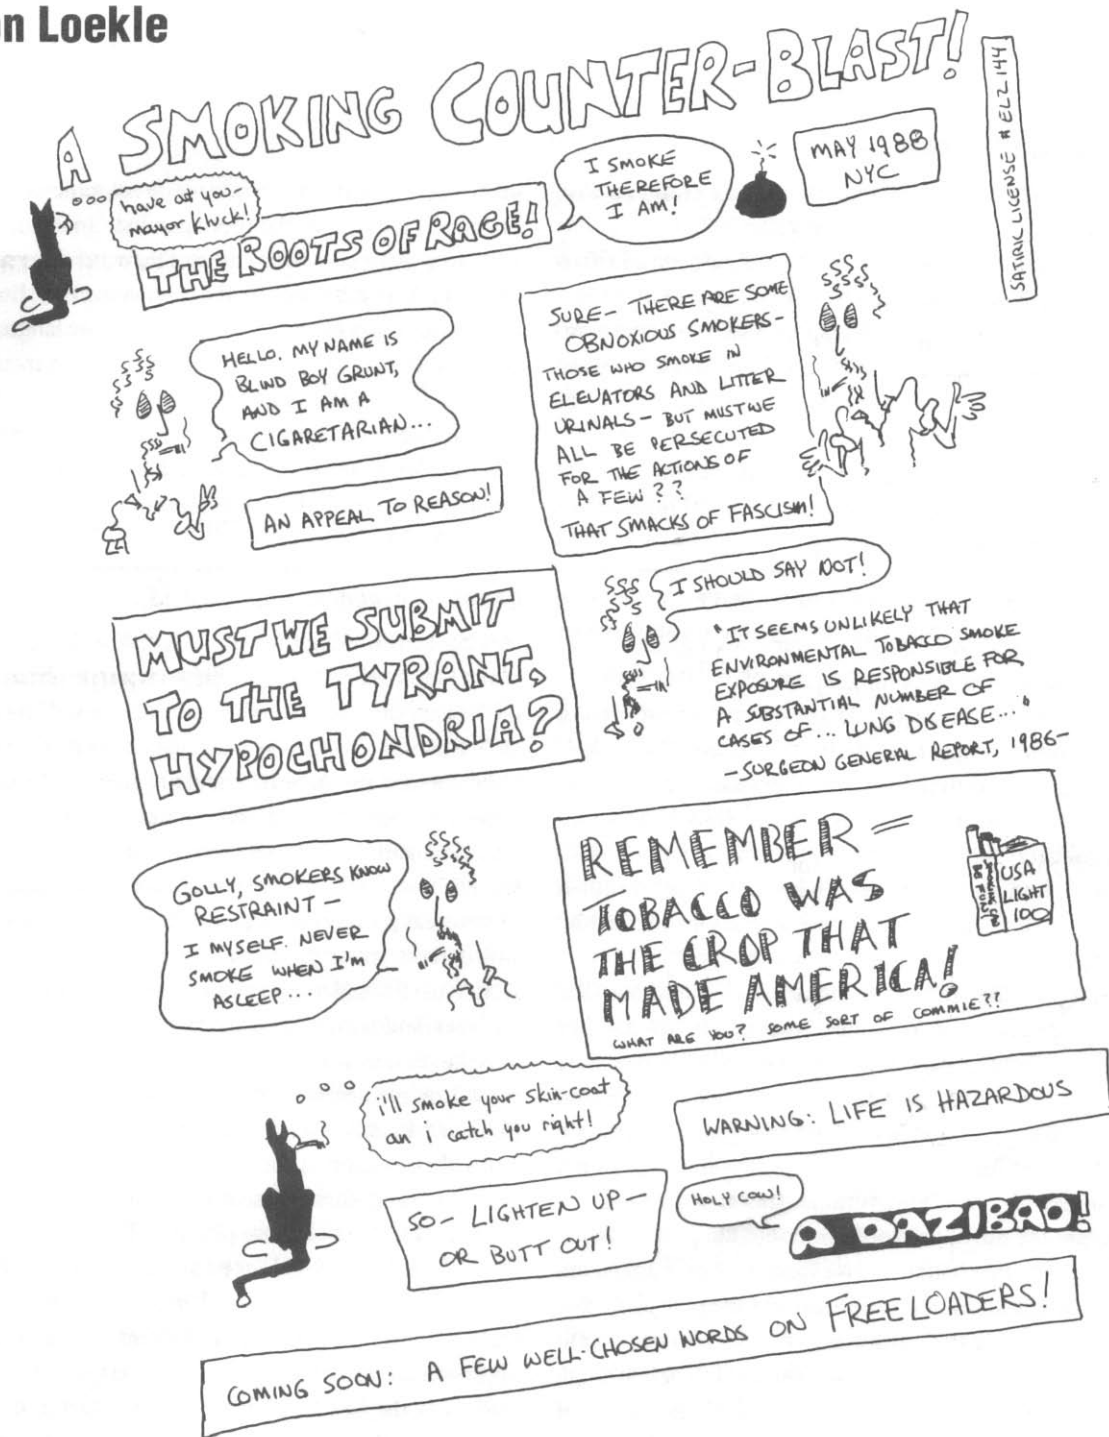 n Loekle
A SMOKING COUNTER-BLAST!
SATIRIK LICENSE # ELZ 144
have at you-
mayor kluck!
THE ROOTS OF RAGE!
I SMOKE
THEREFORE
I AM!
MAY 1988
NYC
HELLO. MY NAME IS
BLIND BOY GRUNT,
AND I AM A
CIGARETARIAN...
AN APPEAL TO REASON!
SURE- THERE ARE SOME
OBNOXIOUS SMOKERS-
THOSE WHO SMOKE IN
ELEVATORS AND LITTER
URINALS- BUT MUST WE
ALL BE PERSECUTED
FOR THE ACTIONS OF
A FEW??
THAT SMACKS OF FASCISM!
MUST WE SUBMIT
TO THE TYRANT,
HYPOCHONDRIA?
I SHOULD SAY NOT!
"IT SEEMS UNLIKELY THAT
ENVIRONMENTAL TOBACCO SMOKE
EXPOSURE IS RESPONSIBLE FOR
A SUBSTANTIAL NUMBER OF
CASES OF... LUNG DISEASE..."
-SURGEON GENERAL REPORT, 1986-
GOLLY, SMOKERS KNOW
RESTRAINT-
I MYSELF. NEVER
SMOKE WHEN I'M
ASLEEP...
REMEMBER=
TOBACCO WAS
THE CROP THAT
MADE AMERICA!
WHAT ARE YOU? SOME SORT OF COMMIE??
SMOKING CAN
BE FUN!
USA
LIGHT
100
i'll smoke your skin-coat
an i catch you right!
WARNING: LIFE IS HAZARDOUS
SO- LIGHTEN UP-
OR BUTT OUT!
HOLY COW!
A DAZIBAO!
COMING SOON: A FEW WELL-CHOSEN WORDS ON FREELOADERS!